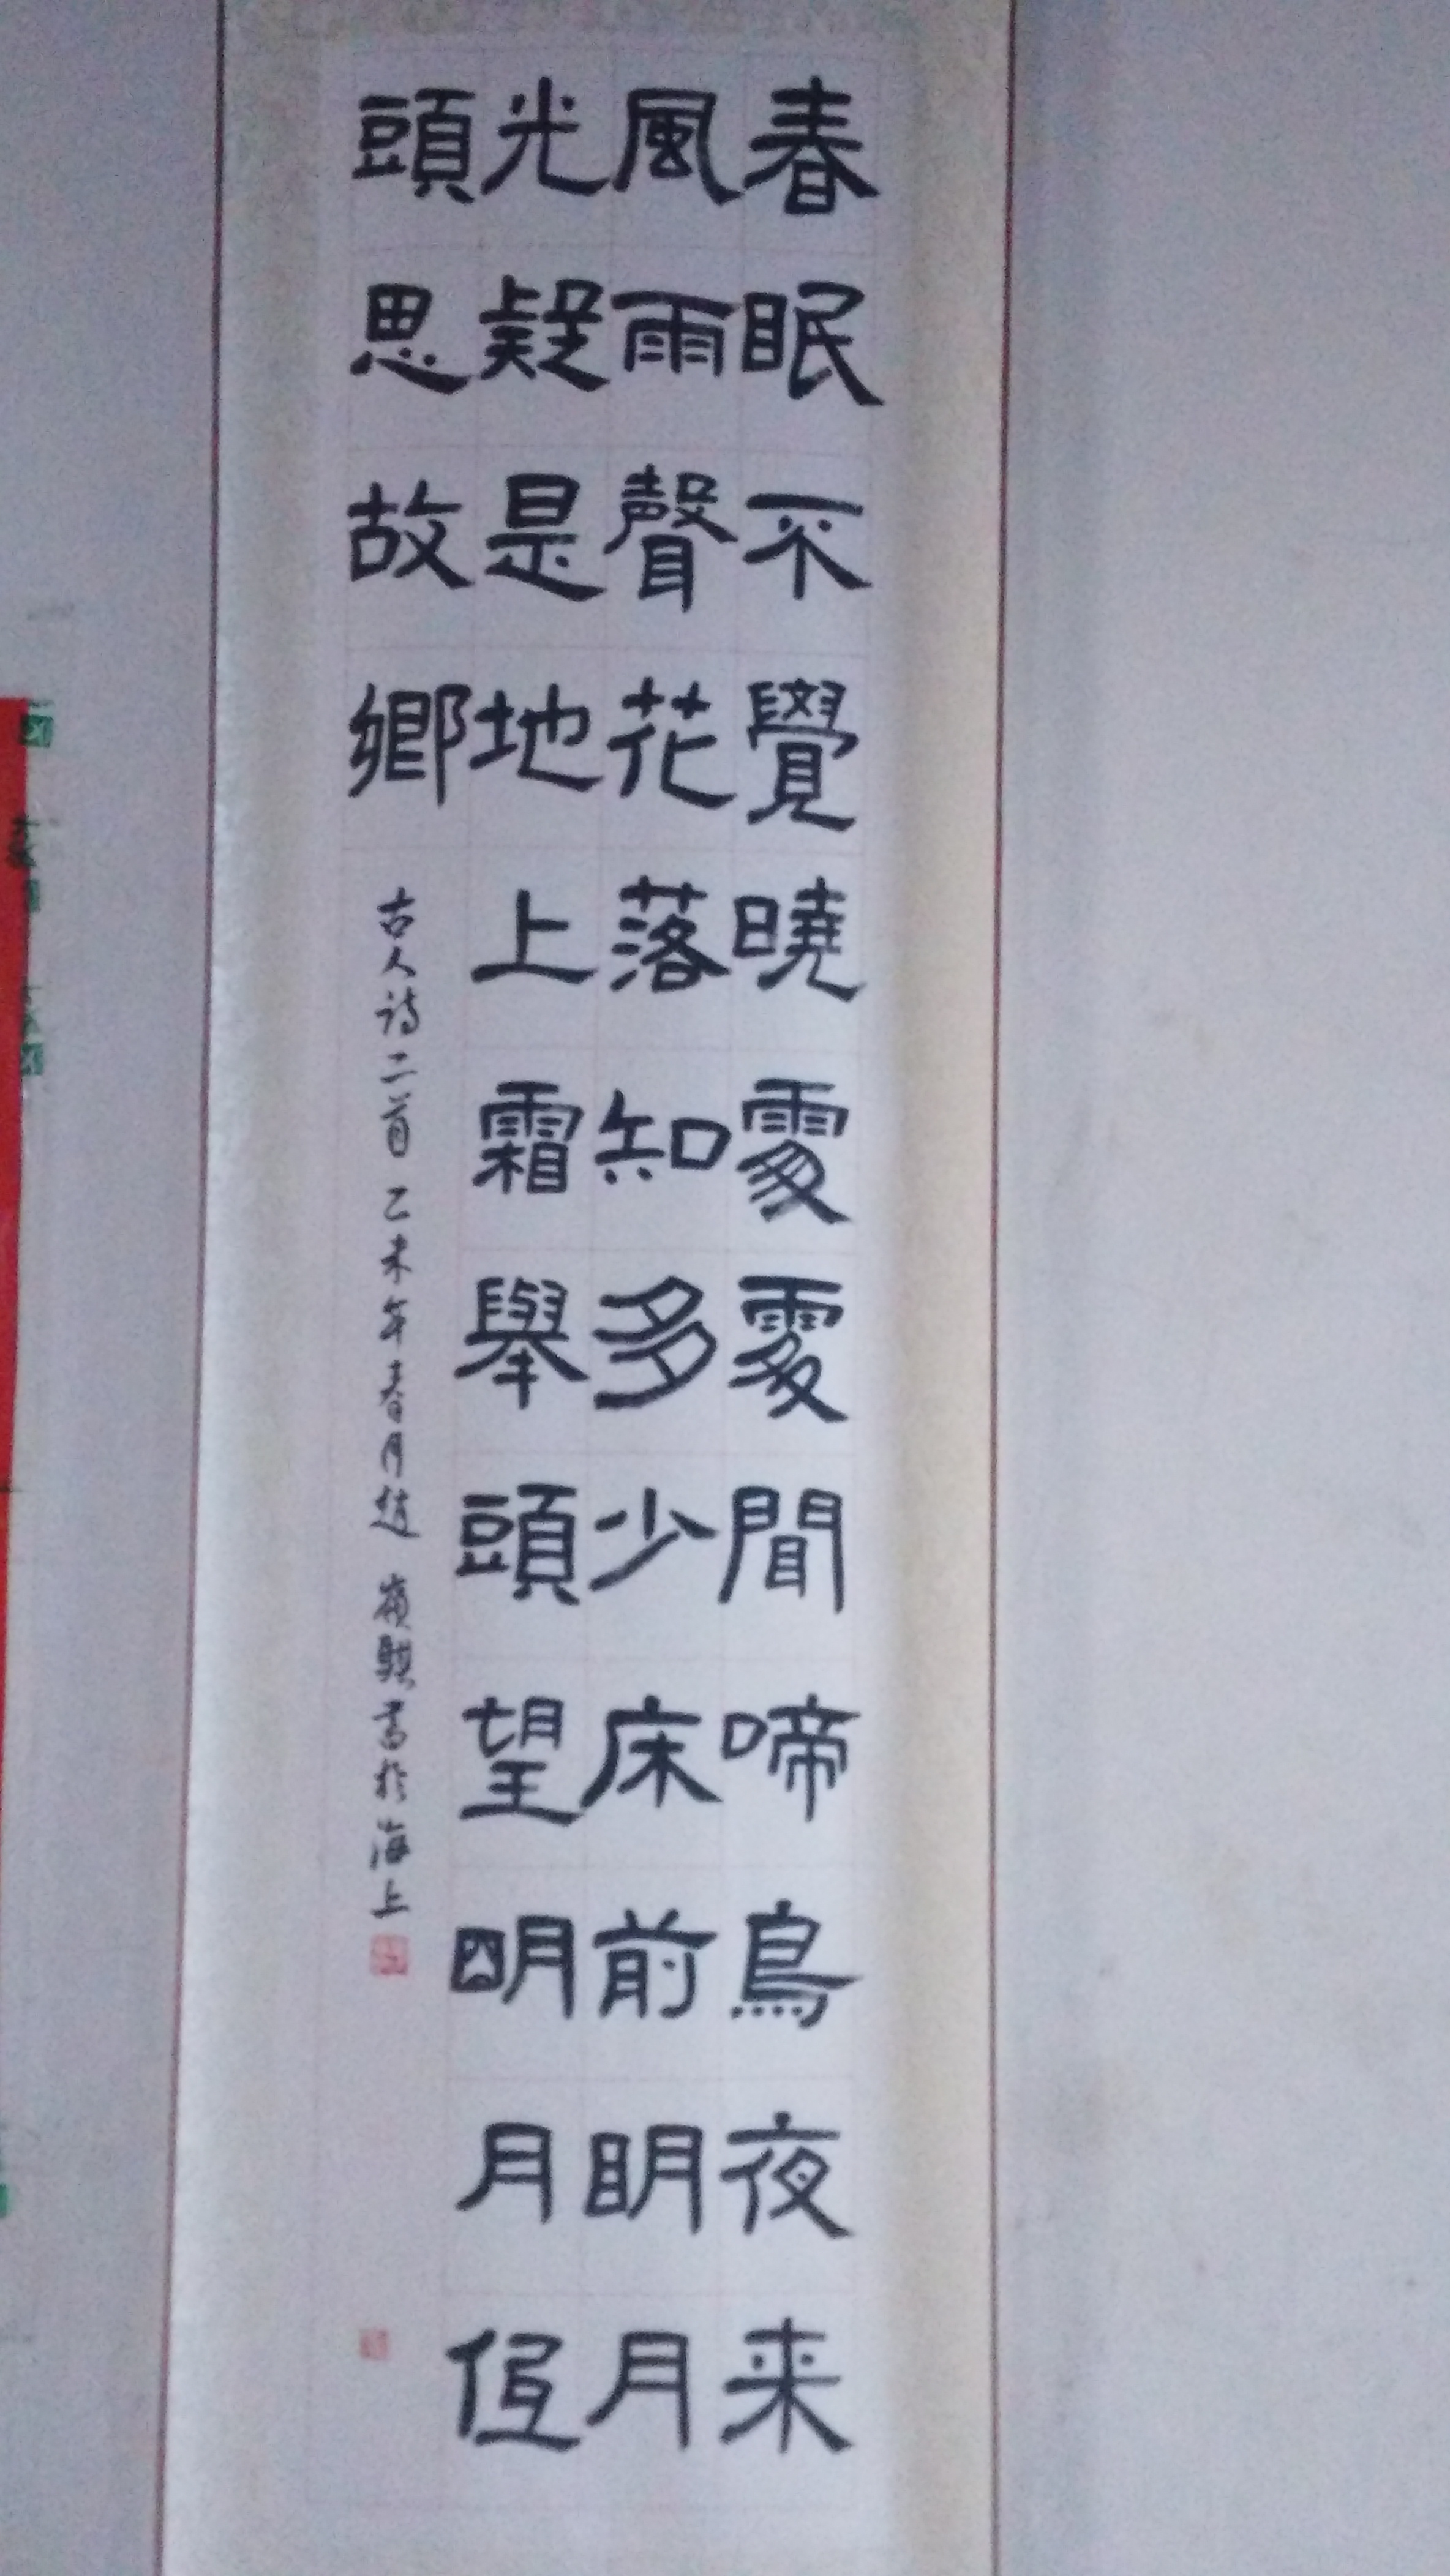 春眠不覺曉處處聞啼鳥夜来
風雨聲花落知多少床前明月
光疑是地上霜舉頭望明月低
頭思故鄉
古人詩二首乙未年春月趙嶺騏書於海上